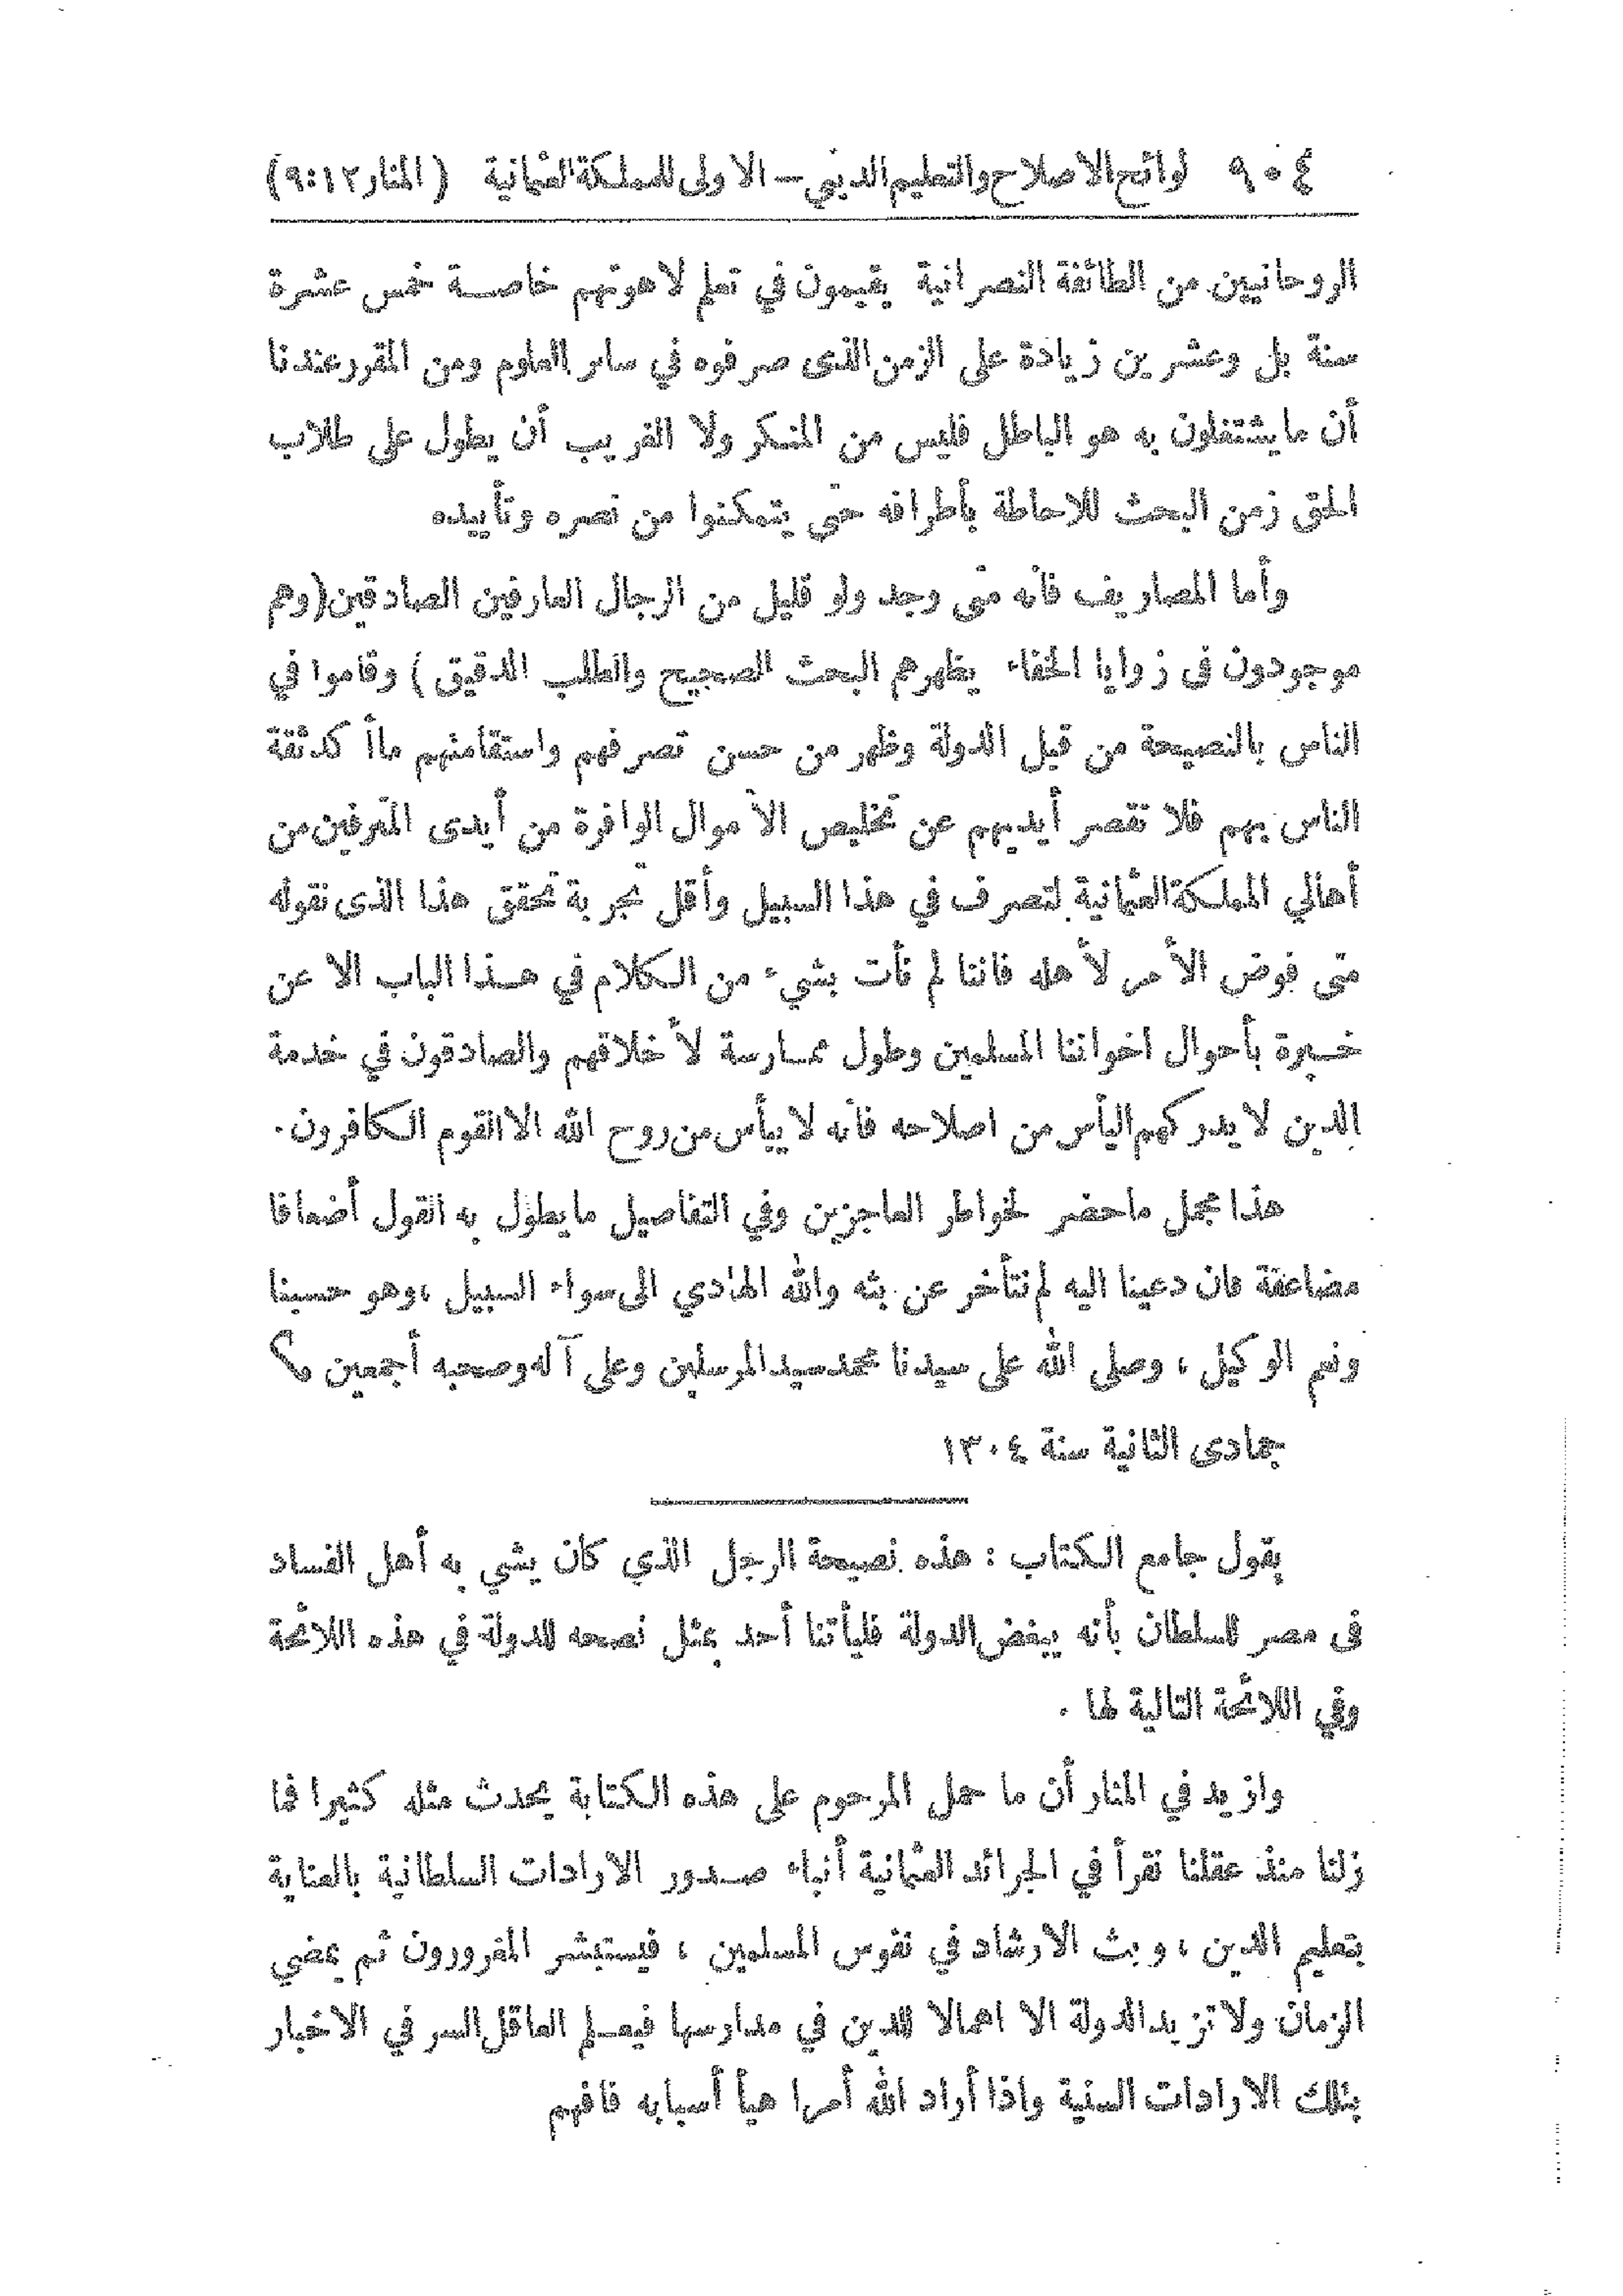 ٩٠٤ لوائح الاصلاح والتعليم الديني — الاولى للمملكة العثمانية (المنار ١٢: ٩)
الروحانيين من الطائفة النصرانية يقيمون في تعلم لاهوتهم خاصة خمس عشرة
سنة بل وعشرين زيادة على الزمن الذى صرفوه في سائر العلوم ومن المقرر عندنا
أن ما يشتغلون به هو الباطل فليس من المنكر ولا الغريب أن يطول على طلاب
الحق زمن البحث للاحاطة بأطرافه حتى يتمكنوا من نصره وتأييده
وأما المصاريف فانه متى وجد ولو قليل من الرجال العارفين الصادقين (وهم
موجودون فى زوايا الخفاء يظهرهم البحث الصحيح والطلب الدقيق) وقاموا في
الناس بالنصيحة من قبل الدولة وظهر من حسن تصرفهم واستقامتهم ما أكد ثقة
الناس بهم فلا تقصر أيديهم عن تخليص الأموال الوافرة من أيدى المترفين من
أهالي المملكة العثمانية لتصرف في هذا السبيل وأقل تجربة تحقق هذا الذى نقوله
متى فوض الأمر لأهله فاننا لم نأت بشيء من الكلام في هذا الباب الا عن
خبرة بأحوال اخواننا المسلمين وطول ممارسة لأخلاقهم والصادقون في خدمة
الدين لا يدركهم اليأس من اصلاحه فانه لا ييأس من روح الله الا القوم الكافرون.
هذا مجمل ما حضر لخواطر العاجزين وفي التفاصيل ما يطول به القول أضعافا
مضاعفة فان دعينا اليه لم نتأخر عن بثه والله الهادي الى سواء السبيل، وهو حسبنا
ونعم الوكيل، وصلى الله على سيدنا محمد سيد المرسلين وعلى آله وصحبه أجمعين م؟
جمادى الثانية سنة ١٣٠٤
يقول جامع الكتاب : هذه نصيحة الرجل الذي كان يشي به أهل الفساد
فى مصر للسلطان بأنه يبغض الدولة فليأتنا أحد بمثل نصحه للدولة في هذه اللائحة
وفي اللائحة التالية لها .
وازيد في المنار أن ما حمل المرحوم على هذه الكتابة يحدث مثله كثيرا فما
زلنا منذ عقلنا نقرأ في الجرائد العثمانية أنباء صدور الارادات السلطانية بالعناية
بتعليم الدين، وبث الارشاد في نفوس المسلمين، فيستبشر المغرورون ثم يمضي
الزمان ولا تزيد الدولة الا اهمالا للدين في مدارسها فيعلم العاقل السر في الاخبار
بتلك الارادات السنية واذا أراد الله أمرا هيأ أسبابه فافهم